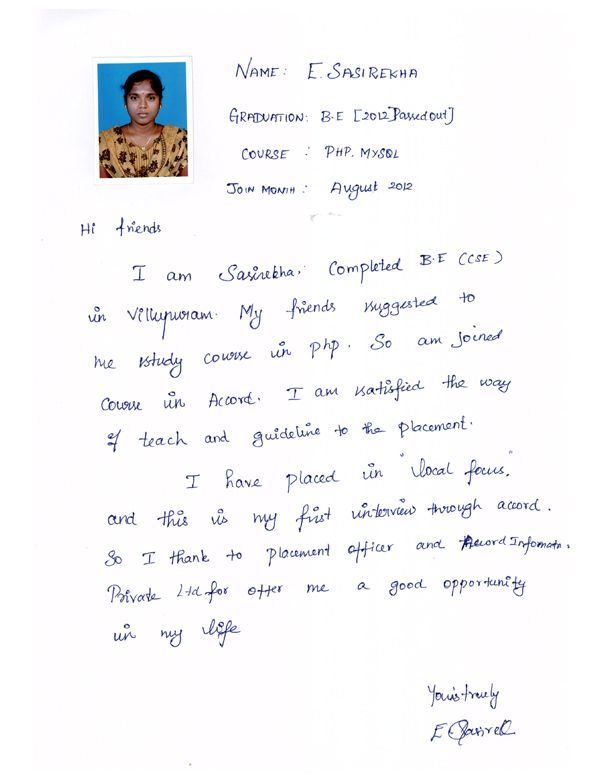 NAME: E. SASIREKHA
GRADUATION: B.E [2012 Passed out]
COURSE : PHP. MYSQL
JOIN MONTH : August 2012
Hi friends
I am Sasirekha. Completed B.E (CSE)
in Villupuram. My friends suggested to
me study course in php. So am joined
Course in Accord. I am satisfied the way
of teach and guideline to the placement.
I have placed in "local focus,"
and this is my first interview through accord.
So I thank to placement officer and Accord Informatn.
Private Ltd for offer me a good opportunity
in my life
Yours truely
E